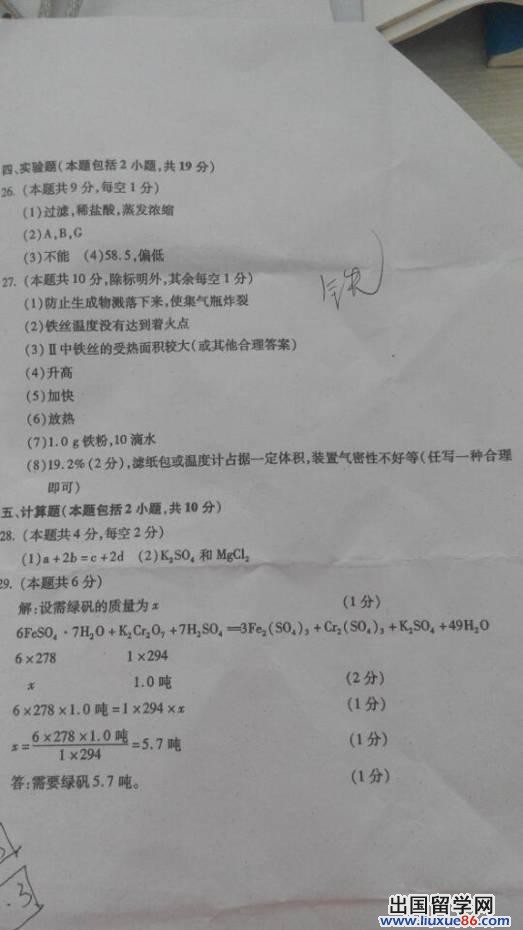 四、实验题(本题包括2小题,共19分)
26. (本题共9分,每空1分)
(1)过滤,稀盐酸,蒸发浓缩
(2)A,B,G
(3)不能 (4)58.5,偏低
27. (本题共10分,除标明外,其余每空1分)
(1)防止生成物溅落下来,使集气瓶炸裂
(2)铁丝温度没有达到着火点
(3)Ⅱ中铁丝的受热面积较大(或其他合理答案)
(4)升高
(5)加快
(6)放热
(7)1.0 g铁粉,10滴水
(8)19.2%(2分),滤纸包或温度计占据一定体积,装置气密性不好等(任写一种合理
即可)
五、计算题(本题包括2小题,共10分)
28. (本题共4分,每空2分)
(1)a+2b=c+2d (2)K₂SO₄和MgCl₂
29. (本题共6分)
解:设需绿矾的质量为x (1分)
6FeSO₄·7H₂O+K₂Cr₂O₇+7H₂SO₄=3Fe₂(SO₄)₃+Cr₂(SO₄)₃+K₂SO₄+49H₂O
6×278 1×294
x 1.0吨 (2分)
6×278×1.0吨=1×294×x (1分)
x=6×278×1.0吨/1×294=5.7吨 (1分)
答:需要绿矾5.7吨。 (1分)
.3
出国留学网
www.liuxue86.com